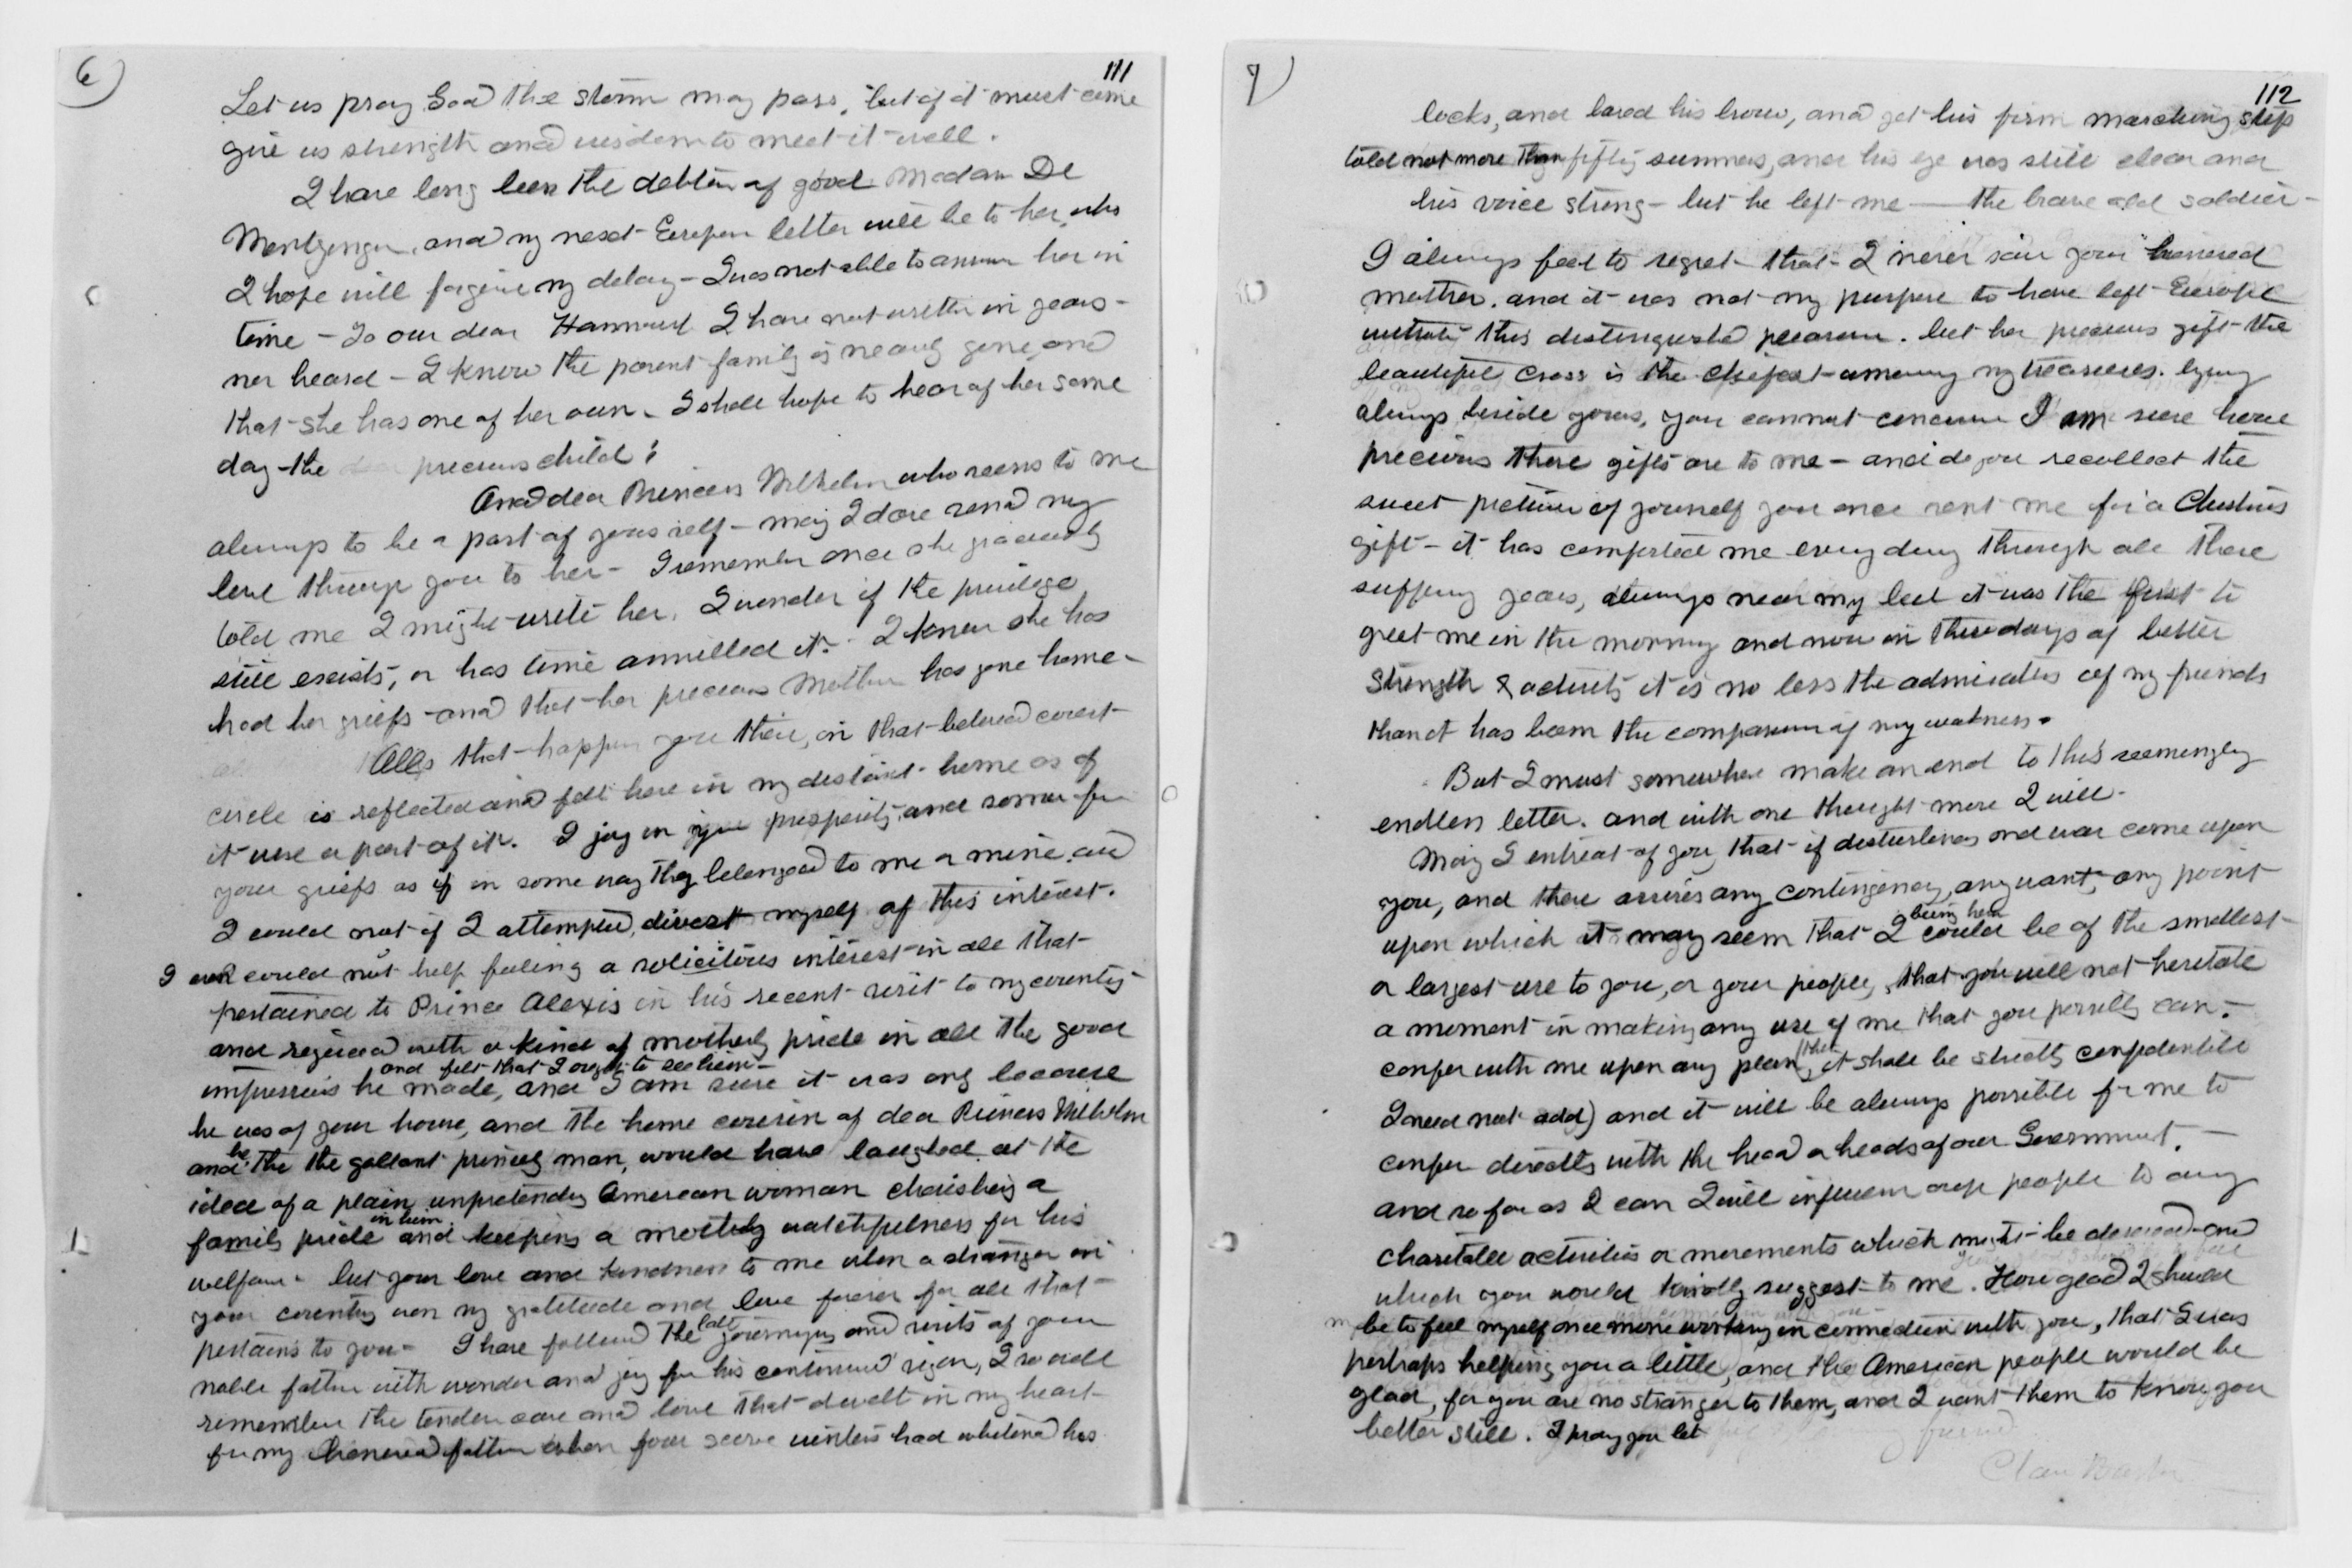 6)
111
Let us pray God the storm may pass, but if it must come
give us strength and wisdom to meet it well.
I have long been the debtor of good Madam De
and my next European letter will be to her, who
I hope will forgive my delay – I was not able to answer her in
time – To our dear Hannah I have not written in years –
nor heard – I know the parent family is nearly gone, and
that she has one of her own – I shall hope to hear of her some
day – the dear precious child!
And dear Princess Wilhelm who seems to me
always to be a part of your self – may I dare send my
love through you to her – I remember once she graciously
told me I might write her. I wonder if the privilege
still exists, or has time annulled it – I know she has
had her griefs – and that her precious Mother has gone home –
All that happen you there, in that beloved court
circle is reflected and felt here in my distant home as if
it were a part of it. I joy in your prosperity, and sorrow for
your griefs as if in some way they belonged to me or mine, and
I could not if I attempted, divest myself of this interest.
I could not help feeling a solicitous interest in all that
pertained to Prince Alexis in his recent visit to my country
and rejoiced with a kind of motherly pride in all the good
and felt that I ought to see him –
impressions he made, and I am sure it was only because
he was of your house, and the home cousin of dear Princess Wilhelm
he
and the the gallant princely man, would have laughed at the
idea of a plain unpretending American woman cherishing a
in him
family pride and keeping a motherly watchfulness for his
welfare – but your love and kindness to me when a stranger in
your country won my gratitude and love forever for all that
pertains to you – I have followed the late journeyings and visits of your
noble father with wonder and joy for his continued vigor, I so well
remember the tender care and love that dwelt in my heart
for my honored father when four score winters had whitened his
7)
112
locks, and bared his brow, and yet his firm marching step
told not more than fifty summers, and his eye was still clear and
his voice strong – but he left me — the brave old soldier –
I always feel to regret that I never saw your honored
mother. and it was not my purpose to have left Europe
without this distinguished pleasure. but her precious gift the
beautiful cross is the chiefest among my treasures. lying
always beside yours, you cannot conceive I am sure how
precious these gifts are to me – and do you recollect the
sweet picture of yourself you once sent me for a Christmas
gift – it has comforted me every day through all these
suffering years, always near my bed it was the first to
greet me in the morning and now in these days of better
strength & activity it is no less the admiration of my friends
than it has been the companion of my weakness.
But I must somewhere make an end to this seemingly
endless letter. and with one thought more I will –
May I entreat of you, that if disturbances and war come upon
you, and there arises any contingency, any want, any point
being here
upon which it may seem that I could be of the smallest
or largest use to you, or your people, that you will not hesitate
a moment in making any use of me that you possibly can. –
confer with me upon any plan, (that it shall be strictly confidential
I need not add) and it will be always possible for me to
confer directly with the head or heads of our Government. –
and so far as I can I will influence our people to any
charitable activities or movements which might be desired and
which you would kindly suggest to me. How glad I should
be to feel myself once more working in connection with you, that I was
perhaps helping you a little, and the American people would be
glad, for you are no stranger to them, and I want them to know you
better still. I pray you let
friend
Clara Barton